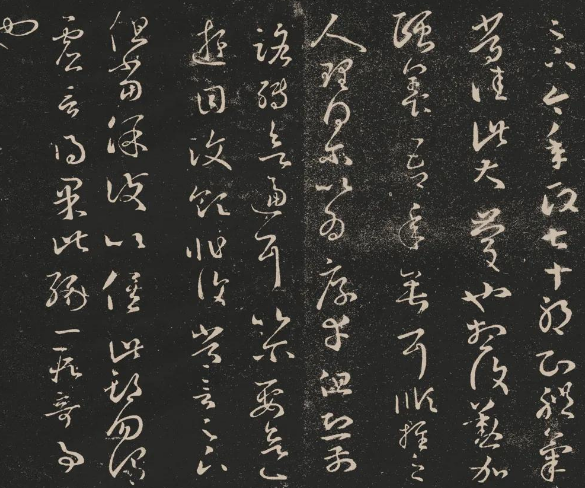 足下今年政七十耶知體氣
常佳此大慶也想復懃加
頤養吾年垂耳順推之
人理得尔以為厚幸但恐前
路轉欲逼耳以尔要欲一
遊目汶領非復常言足下
但當保護以俟此期勿謂
虛言得果此緣一段奇事
也